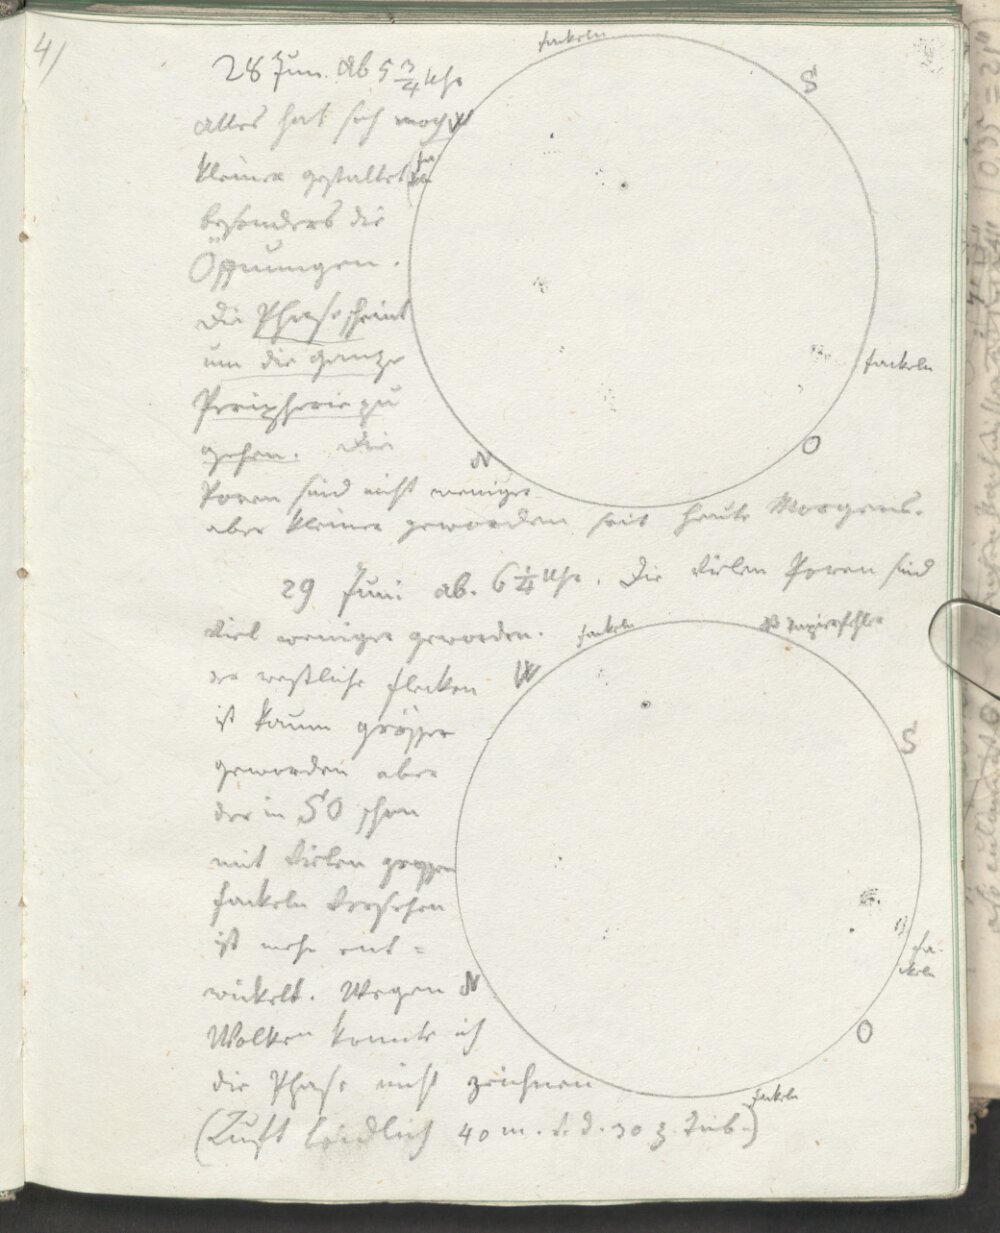 4)
28 Jun. Ab 5 3/4 Uhr
Fackeln
S
Alles hat sich noch
W
kleiner gestaltet
Fa
keln
besonders die
Öffnungen.
Die Phase scheint
um die ganze
Fackeln
Peripherie zu
gehen. Die
O
N
Poren sind nicht weniger
aber kleiner geworden seit heute Morgens.
29 Juni ab. 6 1/4 Uhr. Die vielen Poren sind
viel weniger geworden.
Fackeln
Papierfehler
der westliche Flecken
W
ist kaum grösser
S
geworden aber
der in SO schon
mit vielen
Fackeln versehen
ist mehr ent=
Fa-
keln
wickelt. Wegen
N
Wolken konnte ich
O
die Phase nicht zeichnen
Fackeln
(Luft leidlich 40 m. 30 z.